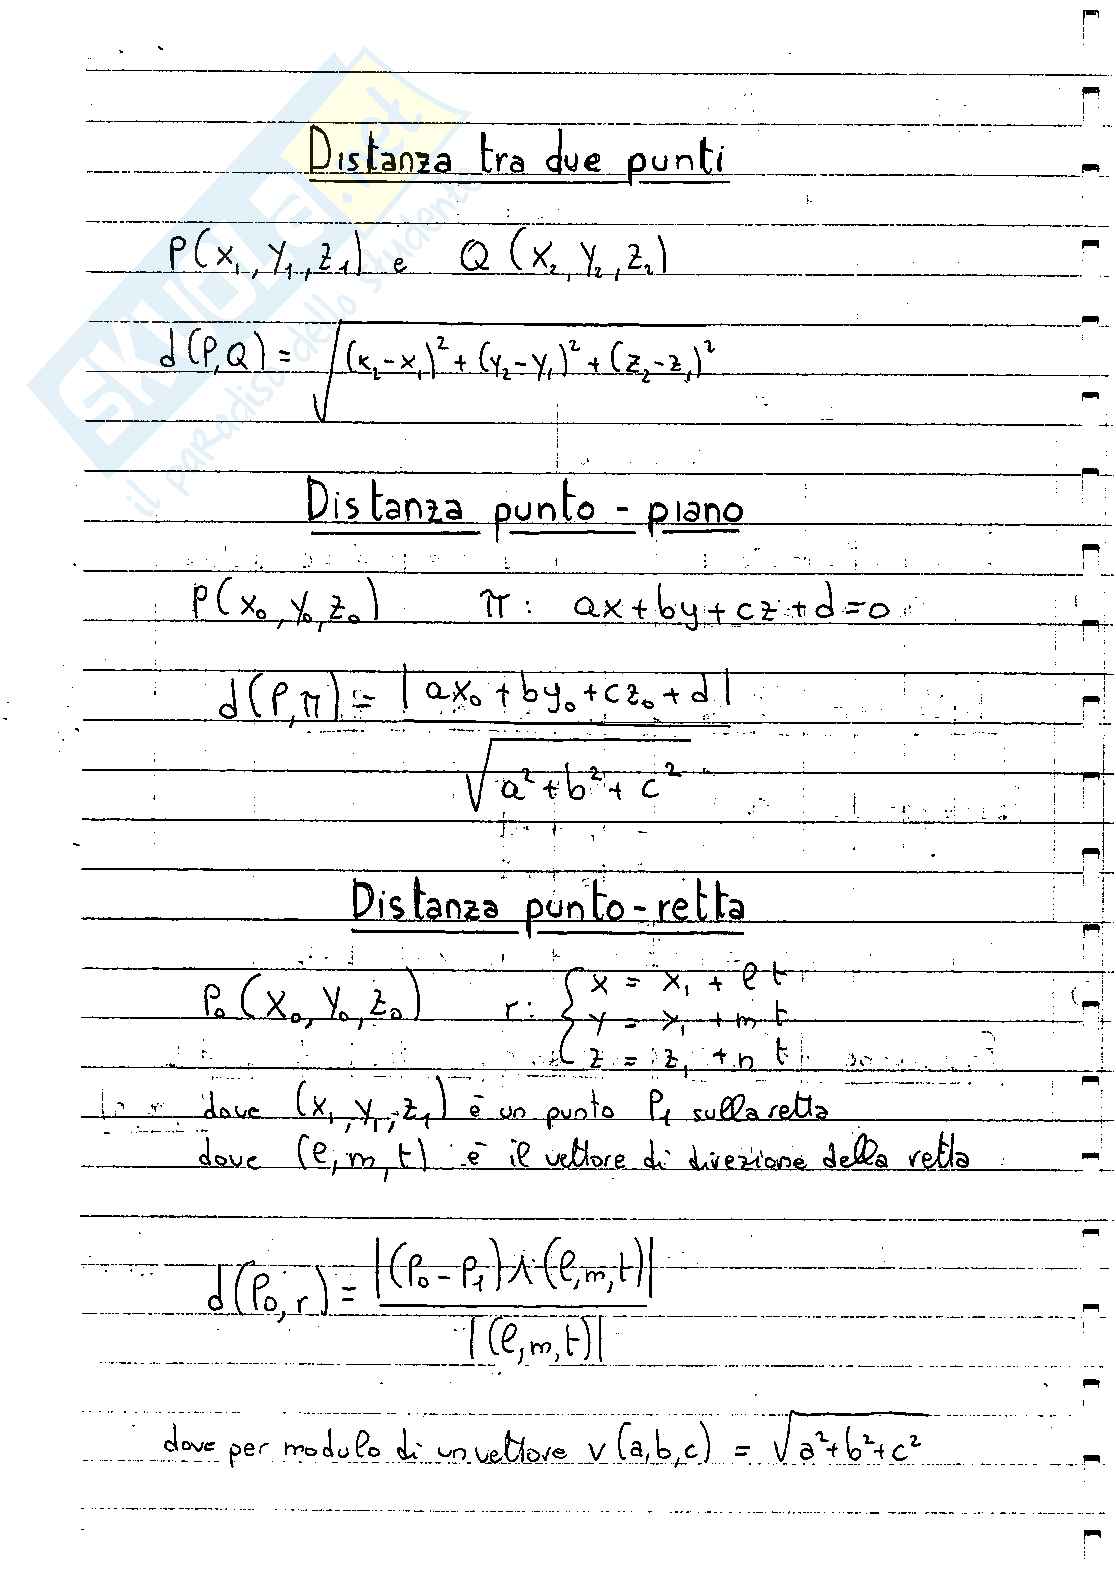 Distanza tra due punti
P(x₁, y₁, z₁) e Q (x₂, y₂, z₂)
d(P,Q) = √(x₂-x₁)² + (y₂-y₁)² + (z₂-z₁)²
Distanza punto - piano
P(x₀, y₀, z₀) π: ax+by+cz+d=0
d(P,π) = |ax₀+by₀+cz₀+d|
√a²+b²+c²
Distanza punto-retta
P₀(x₀, y₀, z₀) r: { x = x₁ + lt
y = y₁ + mt
z = z₁ + nt
dove (x₁, y₁, z₁) è un punto P₁ sulla retta
dove (l, m, t) è il vettore di direzione della retta
d(P₀, r) = |(P₀-P₁)∧(l,m,t)|
|(l,m,t)|
dove per modulo di un vettore v(a,b,c) = √a²+b²+c²
SKUOLA.net
il paradiso dello studente